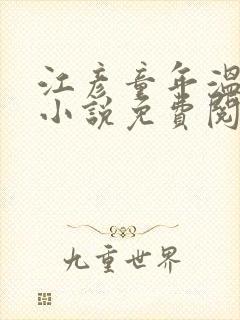 江彦童年溫
小說免費閱
九重世界